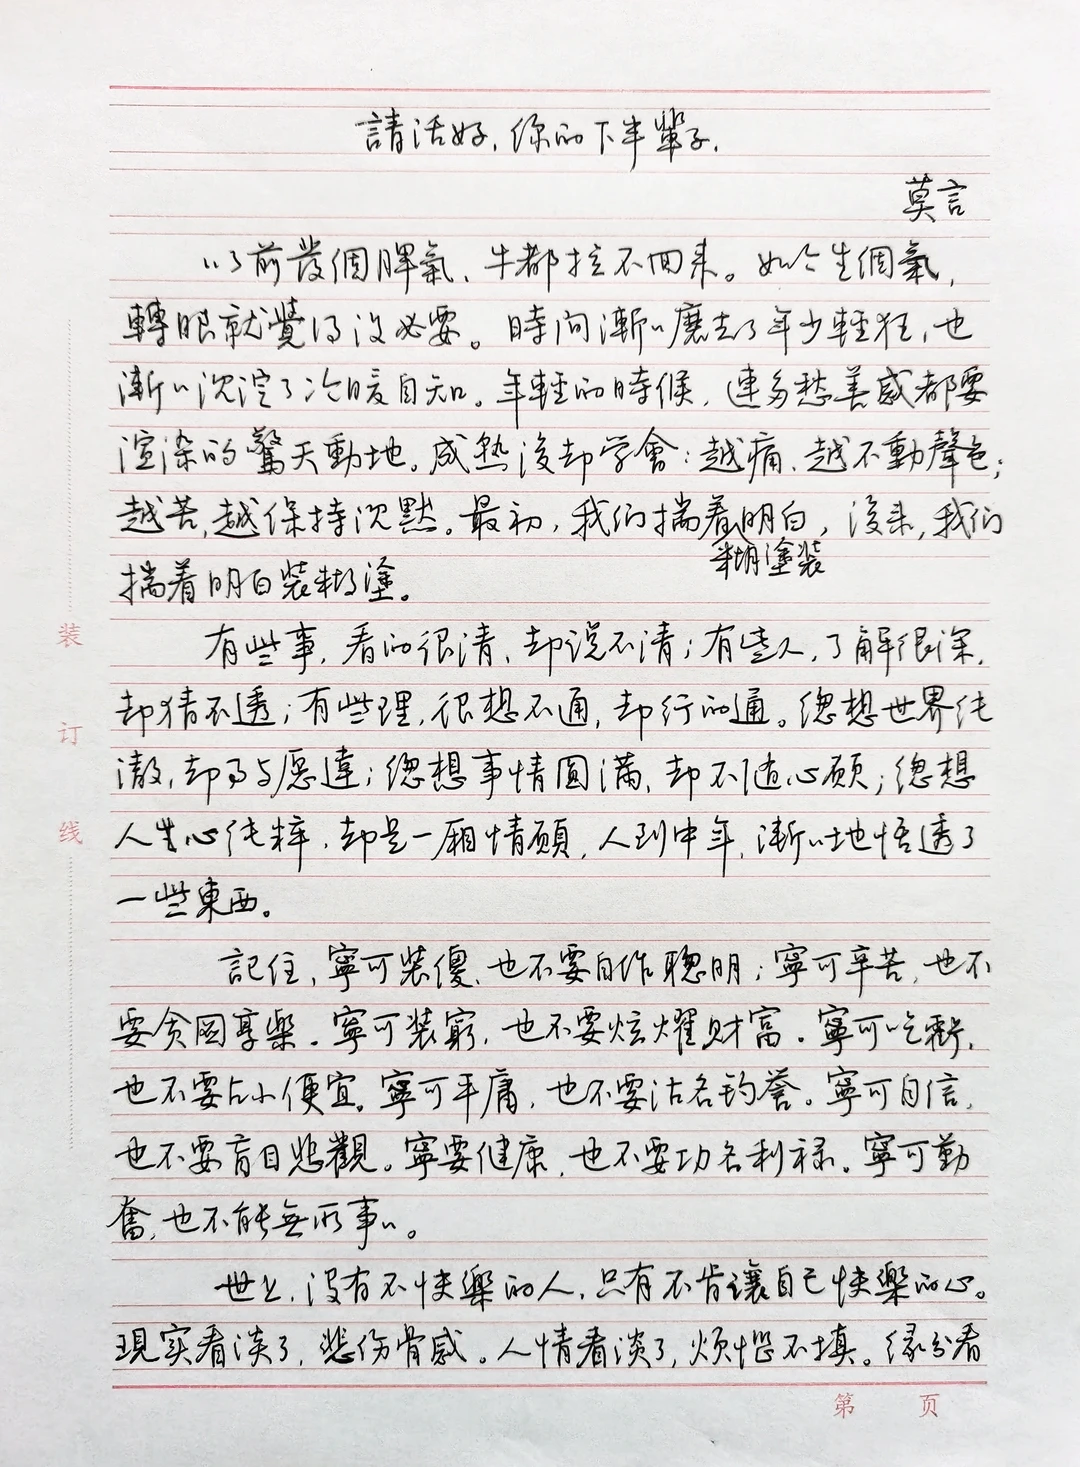 請活好,你的下半輩子.
莫言
以前發個脾氣、牛都拉不回来。如今生個氣,
轉眼就覺得没必要。時间漸〃磨去了年少輕狂,也
漸〃沉淀了冷暖自知。年輕的時候,連多愁善感都要
渲染的驚天動地。成熟後却学會:越痛、越不動聲色;
越苦,越保持沉默。最初,我们揣着明白,後来,我们
糊塗装
揣着明白装糊塗。
有些事,看的很清、却说不清;有些人,了解很深,
却猜不透;有些理,很想不通,却行的通。總想世界纯
澈,却事与愿違;總想事情圆满,却不随心願;總想
人生心纯粹,却是一厢情願,人到中年,漸〃地悟透了
一些東西。
記住,寧可装傻、也不要自作聰明;寧可辛苦,也不
要贪图享樂.寧可装窮,也不要炫耀财富.寧可吃虧,
也不要占小便宜。寧可平庸,也不要沽名钓誉。寧可自信,
也不要盲目悲觀。寧要健康,也不要功名利禄。寧可勤
奮,也不能無所事〃。
世上,没有不快樂的人,只有不肯讓自己快樂的心。
現实看淡了,悲伤骨感。人情看淡了,烦惱不填。缘分看
装
订
线
第 页